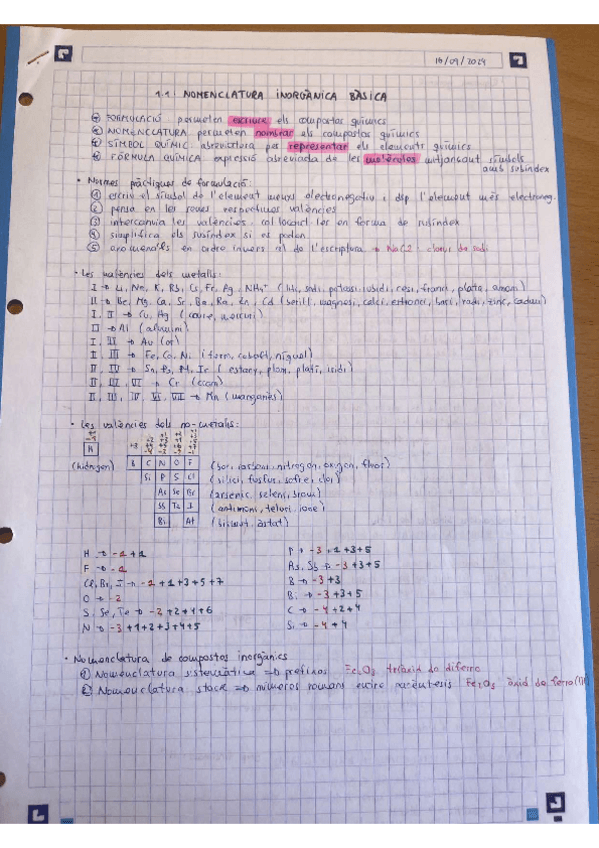 16/09/2024
1.1 NOMENCLATURA INORGÀNICA BÀSICA
FORMULACIÓ permeten escriure els compostos químics
NOMENCLATURA permeten nombrar els compostos químics
SÍMBOL QUÍMIC abreviatura per representar els elements químics
FÓRMULA QUÍMICA expressió abreviada de les molècules mitjançant símbols
amb subíndex
· Normes pràctiques de formulació:
① escriu el símbol de l'element menys electronegatiu i dsp l'element més electroneg.
② pensa en les seves respectives valències
③ intercanvia les valències, col·locant-les en forma de subíndex
④ simplifica els subíndex si es poden
⑤ anomena'ls en ordre invers al de l'escriptura → NaCl: clorur de sodi
· Les valències dels metalls:
I → Li, Na, K, Rb, Cs, Fr, Ag, NH4+ (liti, sodi, potassi, rubidi, cesi, franci, plata, amoni)
II → Be, Mg, Ca, Sr, Ba, Ra, Zn, Cd (beril·li, magnesi, calci, estronci, bari, radi, zinc, cadmi)
I, II → Cu, Hg (coure, mercuri)
→ Al (alumini)
I, III → Au (or)
III → Fe, Co, Ni (ferro, cobalt, níquel)
II, IV → Sn, Pb, Pt, Ir (estany, plom, platí, iridi)
II, III, VI → Cr (crom)
II, III, IV, VI, VII → Mn (manganès)
· Les valències dels no-metalls:
H
(hidrogen) B C N O F (bor, carboni, nitrogen, oxigen, fluor)
Si P S Cl (silici, fòsfor, sofre, clor)
As Se Br (arsènic, seleni, brom)
Te I (antimoni, tel·luri, iode)
Bi At (bismut, àstat)
H → -1 +1
F → -1
Cl, Br, I → -1 +1 +3 +5 +7
O → -2
S, Se, Te → -2 +2 +4 +6
N → -3 +1 +2 +3 +4 +5
P → -3 +1 +3 +5
As, Sb → -3 +3 +5
B → -3 +3
Bi → -3 +3 +5
C → -4 +2 +4
Si → -4 +4
· Nomenclatura de compostos inorgànics
① Nomenclatura sistemàtica ⇒ prefixos Fe2O3 triòxid de diferro
② Nomenclatura stock ⇒ números romans entre parèntesis Fe2O3 òxid de ferro (III)